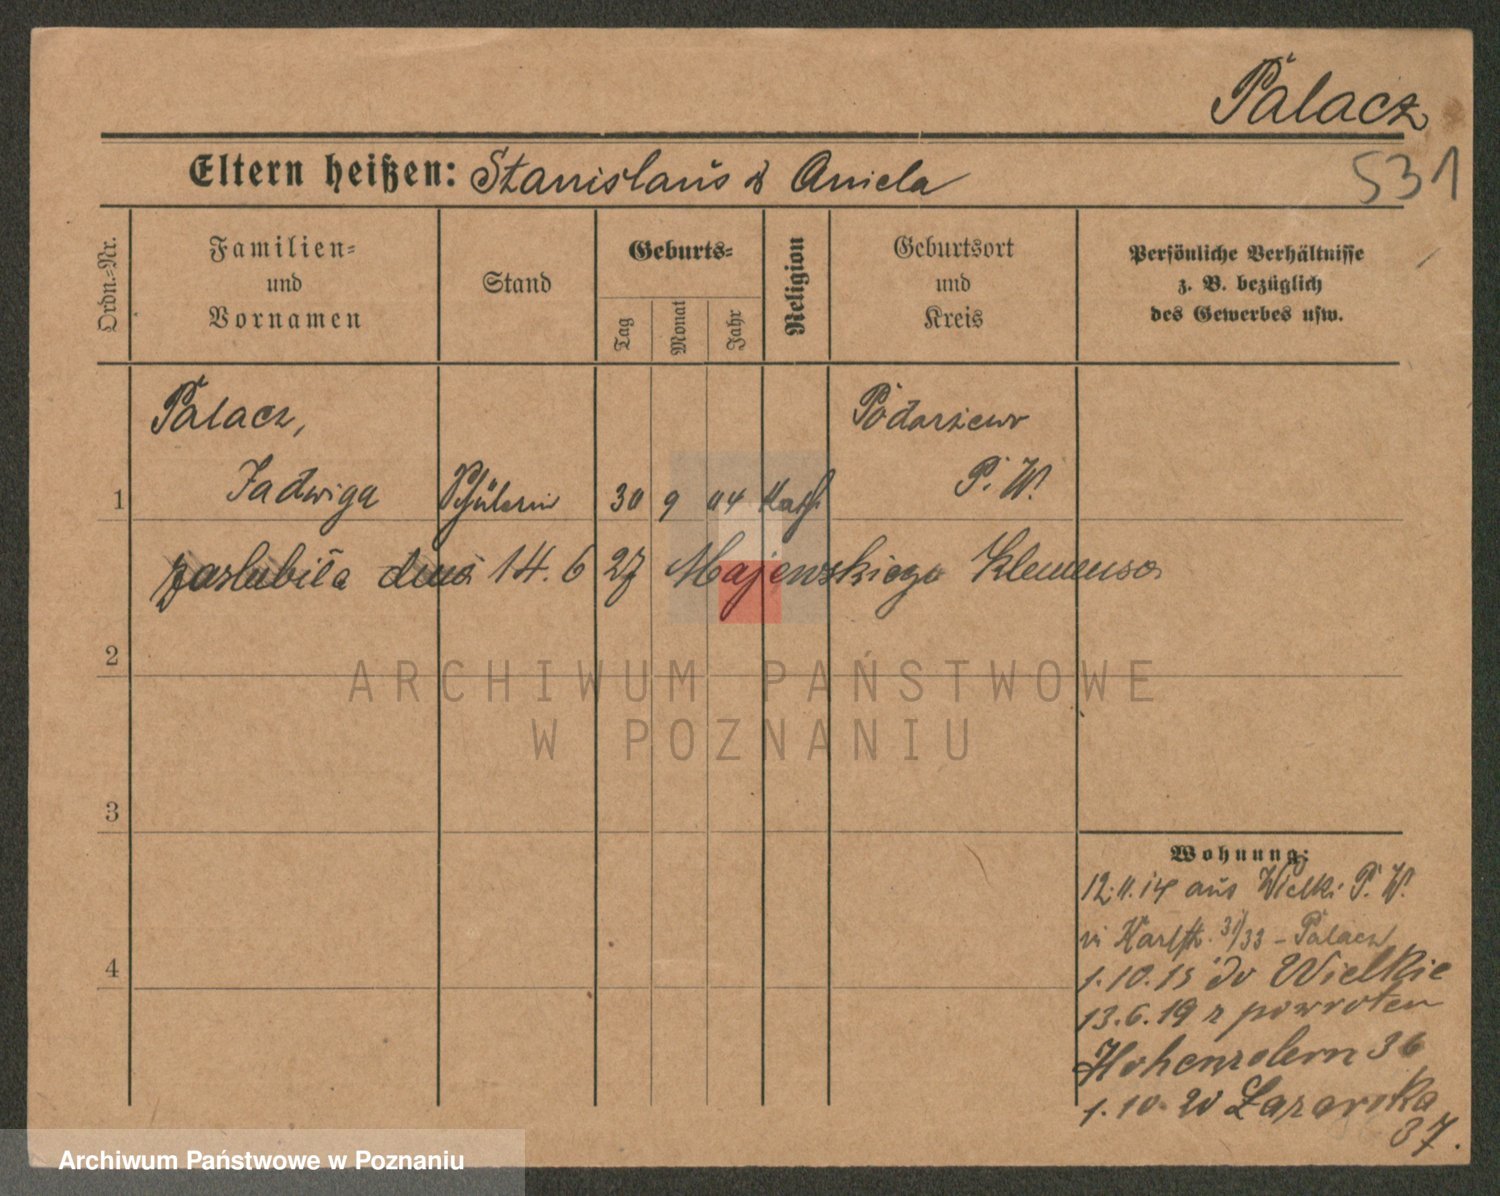 Palacz
531
Eltern heißen: Stanislaus & Aniela
Ordn.-Nr.
Familien-
und
Vornamen
Stand
Geburts-
Tag
Monat
Jahr
Religion
Geburtsort
und
Kreis
Persönliche Verhältnisse
z. B. bezüglich
des Gewerbes usw.
Palacz,
Podarzewo
1 Jadwiga Schülerin 30 9 04 Kath. P. W.
zaślubiła dnia 14. 6 27 Majewskiego Klemensa
2
ARCHIWUM PAŃSTWOWE
W POZNANIU
3
Wohnung:
12.11.14 aus Wielki P. W.
Karlstr. 31/33 – Palacz
4
1.10.15 do Wielkie
13.6.19 z powroten
Hohenzolern 36
1.10.20 Łazarska
37.
Archiwum Państwowe w Poznaniu